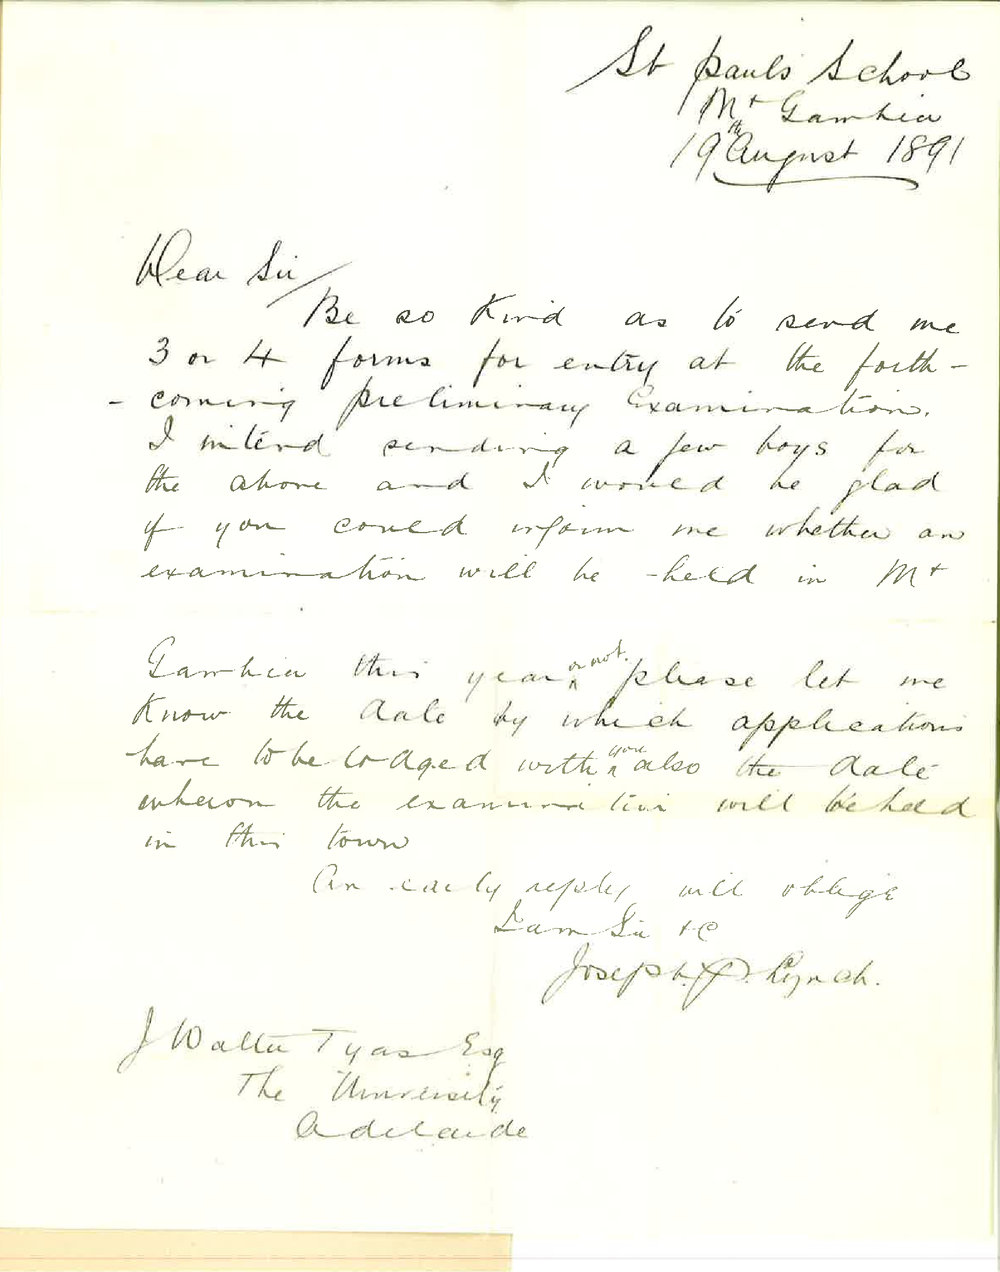 St Pauls School
Mt Gambier
19th August 1891
Dear Sir
Be so kind as to send me
3 or 4 forms for entry at the forth-
-coming preliminary Examination.
I intend sending a few boys for
the above and I would be glad
if you could inform me whether an
examination will be held in Mt
Gambier this year or not. please let me
know the date by which applications
have to be lodged with you also the date
whereon the examination will be held
in this town
An early reply will oblige
I am Sir &c
Joseph. P. Lynch.
J Walter Tyas Esq
The University
Adelaide